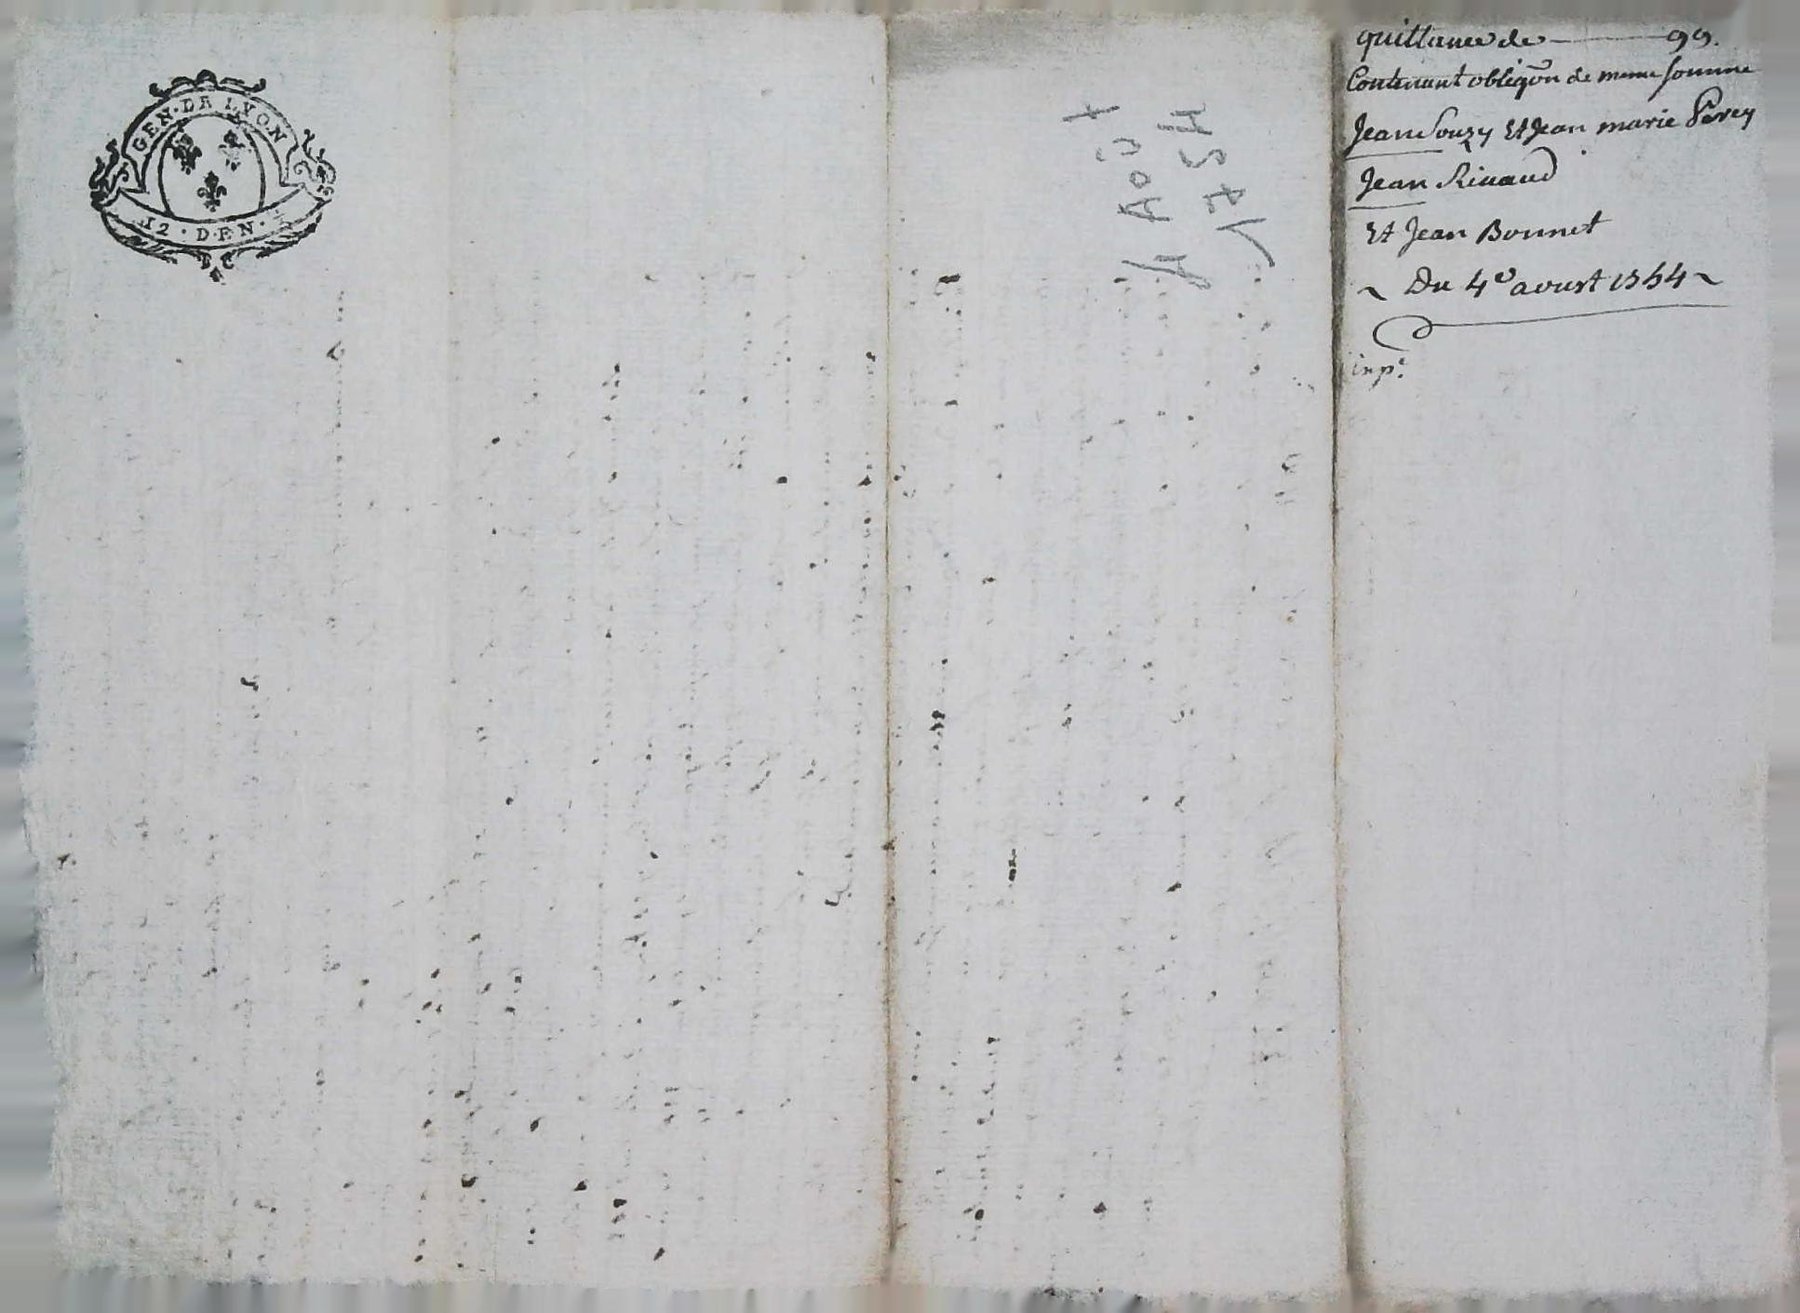 GEN·DE LYON
12·DEN·
4 Août
1754
quittance de ——— 99.
Contenant obligõn de meme somme
Jean Souzy Et Jean marie Perey
Jean Rivaud
Et Jean Bonnet
~ Du 4e aoust 1754 ~
inp.e